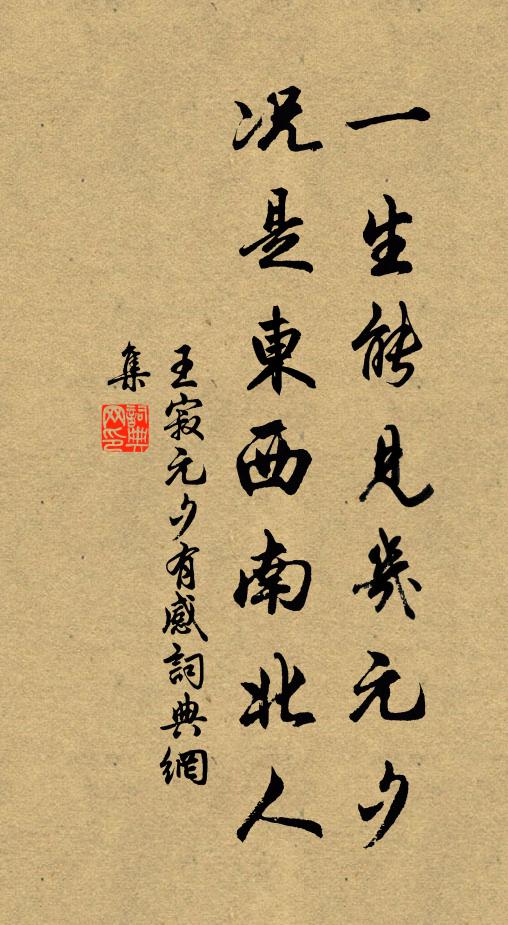 一生能見幾元夕
况是東西南北人
王寂元夕有感詞典網
集
詞典网印